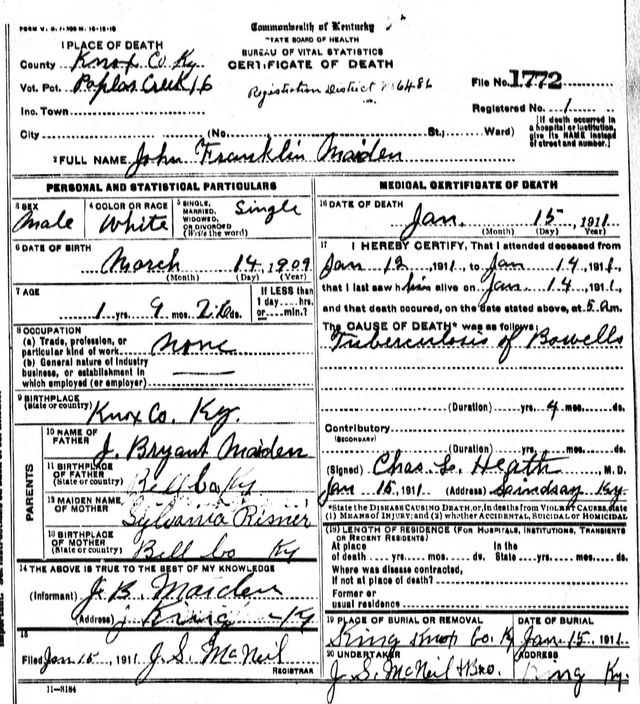 Commonwealth of Kentucky
STATE BOARD OF HEALTH
BUREAU OF VITAL STATISTICS
CERTIFICATE OF DEATH
1 PLACE OF DEATH
County Knox Co. Ky.
Vot. Pct. Poplar Creek 16
Registration District No 6486
File No. 1772
Inc. Town
Registered No. 1
City (No. St.; Ward)
[If death occurred in a hospital or institution, give its NAME instead of street and number.]
2 FULL NAME John Franklin Maiden
PERSONAL AND STATISTICAL PARTICULARS
3 SEX
Male
4 COLOR OR RACE
White
5 SINGLE, MARRIED, WIDOWED, OR DIVORCED
(Write the word)
Single
6 DATE OF BIRTH
March 14, 1909
(Month) (Day) (Year)
7 AGE
1 yrs. 9 mos. ds.
If LESS than
1 day....hrs.
or....min.?
8 OCCUPATION
(a) Trade, profession, or
particular kind of work none
(b) General nature of industry
business, or establishment in
which employed (or employer)
9 BIRTHPLACE
(State or country) Knox Co. Ky.
PARENTS
10 NAME OF
FATHER J. Bryant Maiden
11 BIRTHPLACE
OF FATHER
(State or country) Bell co Ky
12 MAIDEN NAME
OF MOTHER Sylvania Risner
13 BIRTHPLACE
OF MOTHER
(State or country) Bell co Ky
14 THE ABOVE IS TRUE TO THE BEST OF MY KNOWLEDGE
(Informant) J. B. Maiden
(Address) King Ky
15
Filed Jan 15, 1911 J. S. McNeil
REGISTRAR
11—3184
MEDICAL CERTIFICATE OF DEATH
16 DATE OF DEATH
Jan. 15, 1911
(Month) (Day) (Year)
17 I HEREBY CERTIFY, That I attended deceased from
Jan 12, 1911, to Jan 14, 1911,
that I last saw him alive on Jan 14, 1911,
and that death occured, on the date stated above, at 5 am.
The CAUSE OF DEATH* was as follows:
Tuberculosis of Bowells
(Duration) yrs. 4 mos. ds.
Contributory
(SECONDARY)
(Duration) yrs. mos. ds.
(Signed) Chas. L. Heath, M. D.
Jan 15, 1911 (Address) Lindsay Ky.
*State the DISEASE CAUSING DEATH, or, in deaths from VIOLENT CAUSES, state
(1) MEANS OF INJURY; and (2) whether ACCIDENTAL, SUICIDAL or HOMICIDAL.
(18) LENGTH OF RESIDENCE (FOR HOSPITALS, INSTITUTIONS, TRANSIENTS
OR RECENT RESIDENTS)
At place In the
of death yrs. mos. ds. State yrs. mos. ds.
Where was disease contracted,
if not at place of death?
Former or
usual residence
19 PLACE OF BURIAL OR REMOVAL
King Knox Co. Ky
DATE OF BURIAL
Jan. 15, 1911
20 UNDERTAKER
J. S. McNeil & Bro.
ADDRESS
King Ky.